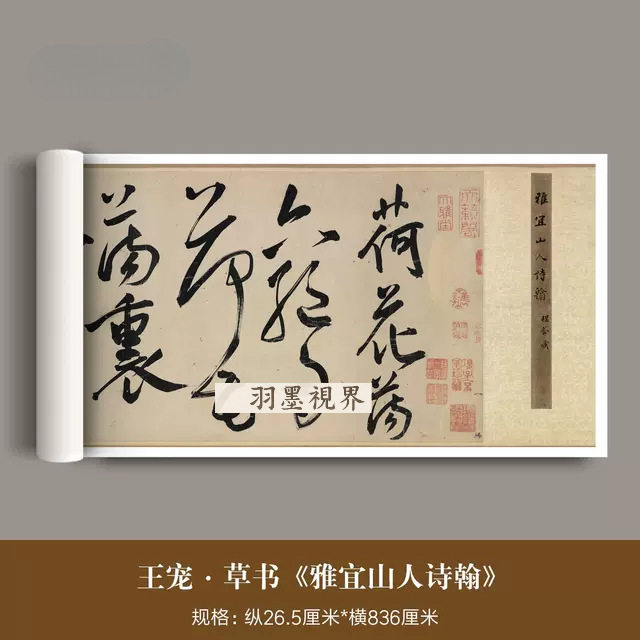 雅宜山人詩翰
荷花蕩
六絕句
荷花
蕩裏
羽墨視界
王宠·草书《雅宜山人诗翰》
规格:纵26.5厘米*横836厘米